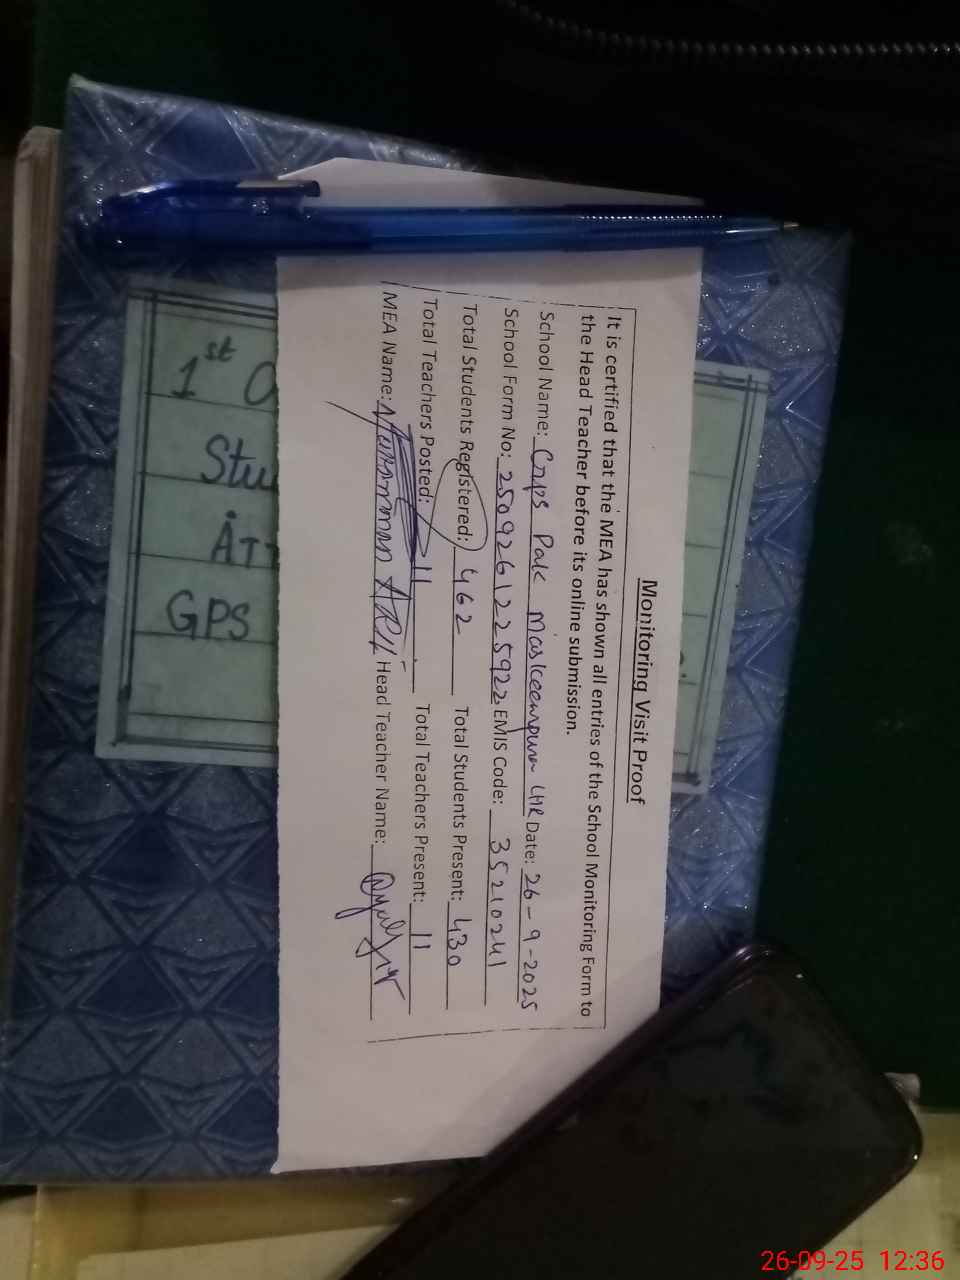 Monitoring Visit Proof
It is certified that the MEA has shown all entries of the School Monitoring Form to
the Head Teacher before its online submission.
School Name: Pak Maskeenpura LHR Date: 26-9-2025
School Form No: 250926122592 EMIS Code: 35210241
Total Students Registered: 462 Total Students Present: 430
Total Teachers Posted: 11 Total Teachers Present: 11
MEA Name: Head Teacher Name:
1st
Stu
Att
GPS
26-09-25 12:36